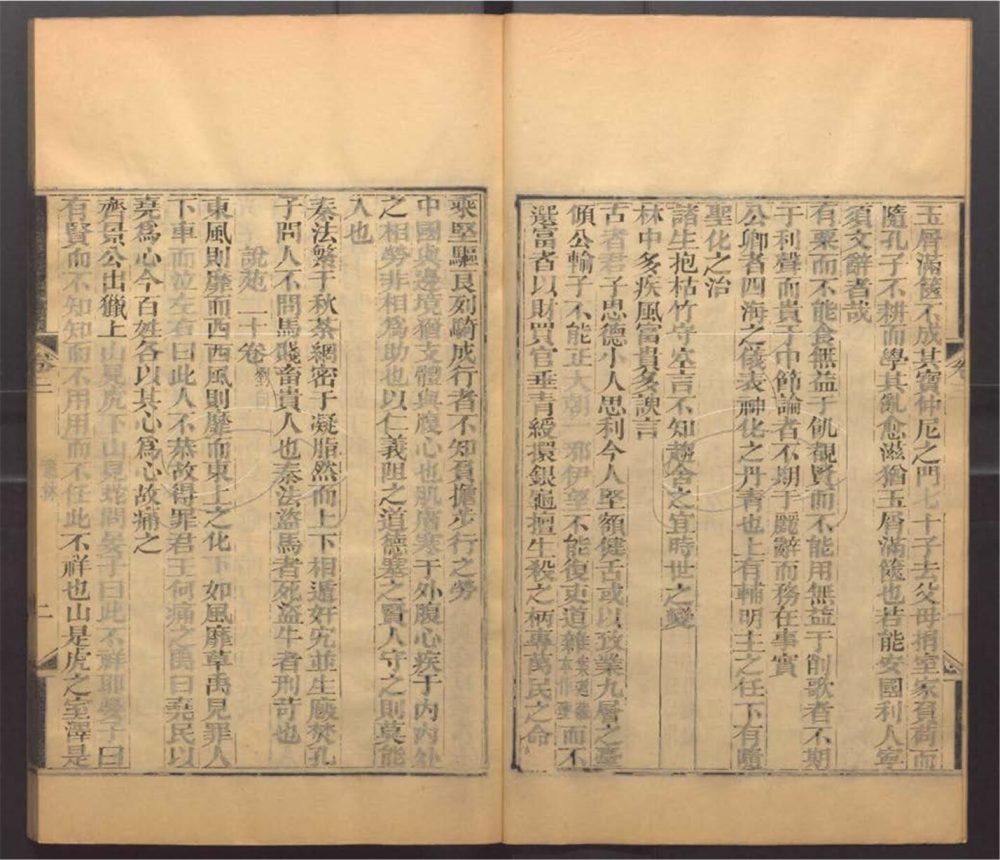 玉屑滿篋不成其寶仲尼之門七十子去父母捐室家負荷而
隨孔子不耕而學其亂愈滋猶玉屑滿篋也若能安國利人寧
須文辭者哉
有粟而不能食無益于飢覩賢而不能用無益于削歌者不期
于利聲而貴于中節論者不期于麗辭而務在事實
公卿者四海之儀表神化之丹青也上有輔明主之任下有隨
聖化之治
諸生抱枯竹守空言不知趨舍之宜時世之變
林中多疾風富貴多諛言
古者君子思德小人思利今人堅額健舌或以致業九層之臺
傾公輸子不能正大朝一邪伊望不能復吏道雜而不
選富者以財買官垂青綬擐銀龜擅生殺之柄專萬民之命
乘堅驅良列騎成行者不知負擔步行之勞
中國與邊境猶支體與腹心也肌膚寒于外腹心疾于內內外
之相勞非相爲助也以仁義阻之道德塞之賢人守之則莫能
入也
秦法繁于秋荼網密于凝脂然而上下相遁奸宄並生廄焚孔
子問人不問馬賤畜貴人也秦法盜馬者死盜牛者刑苛也
說苑二十卷 劉向
東風則靡而西西風則靡而東上之化下如風靡草禹見罪人
下車而泣左右曰此人不恭故得罪君王何痛之禹曰堯民以
堯爲心今百姓各以其心爲心故痛之
齊景公出獵上山見虎下山見蛇問晏子曰此不祥耶晏子曰
有賢而不知知而不用用而不任此不祥也山是虎之室澤是
卷二
意林
二